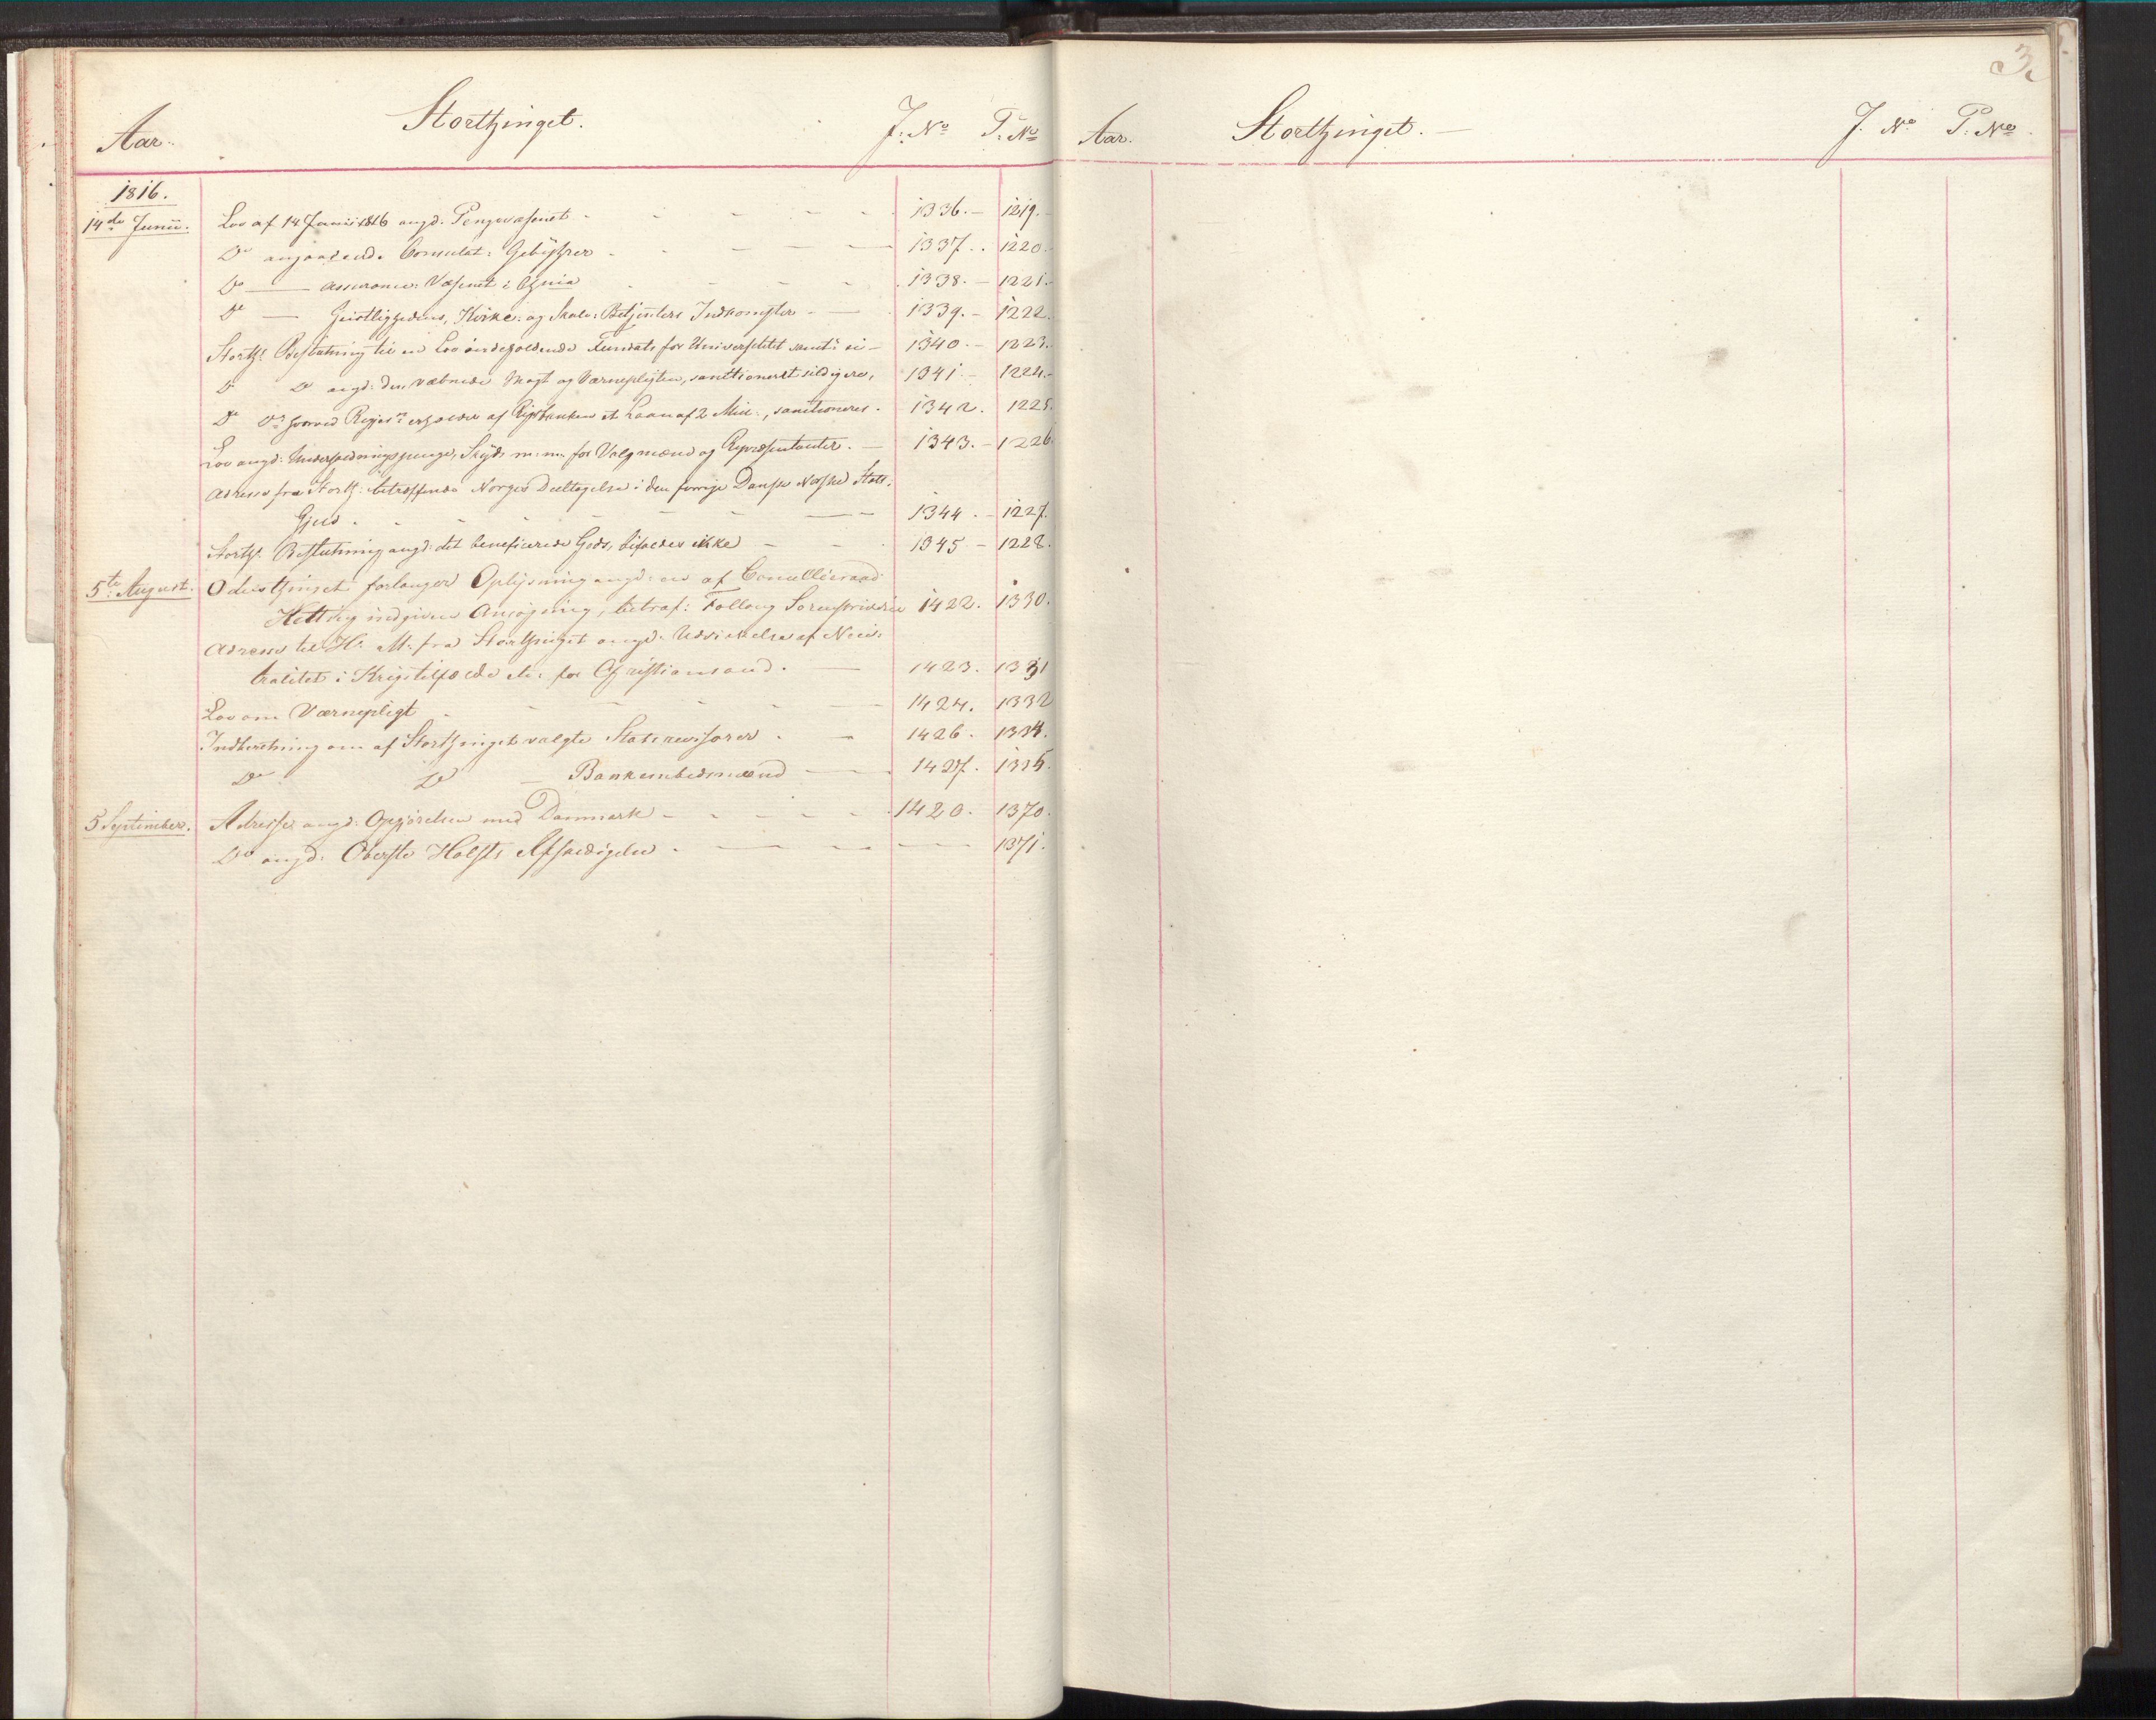 Aar. Storthinget. J: No P: No
1816.
14de Junii. Lov af 14 Junii 1816 angd. Pengevæsenet 1336. 1219.
Do angaaende Consulat: Gebyhrer 1337. 1220.
Do — Assurance: Væsenet i Chnia 1338. 1221.
Do — Geistlighedens, Kirke- og Skole-Betjenters Indkomster 1339. 1222.
Storth: Beslutning til en Lov indeholdende Fundats for Universitetet sanct: ei 1340. 1223.
Do Do angd: den væbnede Magt og Værnepligten, sanctioneret sildigere, 1341. 1224.
Do Do hvorved Regjen erholder af Rigsbanken et Laan af 2 Mill:, sanctioneres. 1342. 1225.
Lov angd: Underholdningspenge, Skyds m: m: for Valgmænd og Repræsentanter. 1343. 1226.
Adresse fra Storth: betræffende Norges Deeltagelse i den forrige Danske Norske Stats-
Gjeld. 1344. 1227.
Storth: Beslutning angd: det beneficerede Gods, bifaldes ikke 1345 1228.
5te August. Odelsthinget forlanger Oplysning angd: en af Cancelliraad
indgiven Ansøgning, betræf: Folloug Sorenskriverie 1422. 1330.
Adresse til H: M: fra Storthinget angd. Udvirkelse af Neu-
tralitet i Krigstilfælde for Christiansand. 1423. 1331
Lov om Værnepligt 1424. 1332
Indberetning om af Storthinget valgte Statsrevisorer 1426. 1334.
Do Do — Bankembedsmænd 1427. 1335.
5 September. Adresse angd: Opgjørelsen med Danmark 1420. 1370.
Do angd: Oberste Holsts Afskedigelse 1371.
3.
Aar. Storthinget. — J. No P: No